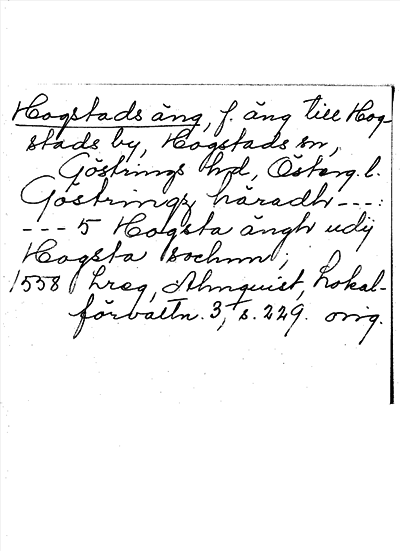 Hogstads äng, f. äng till Hog-
stads by, Hogstads sn,
Göstrings hd, Österg. l.
Göstringz häradh ---:
--- 5 Hogsta ängh udij
Hogsta sochnn;
1558 hreg, Almquist, Lokal-
förvaltn. 3, s. 229. orig.